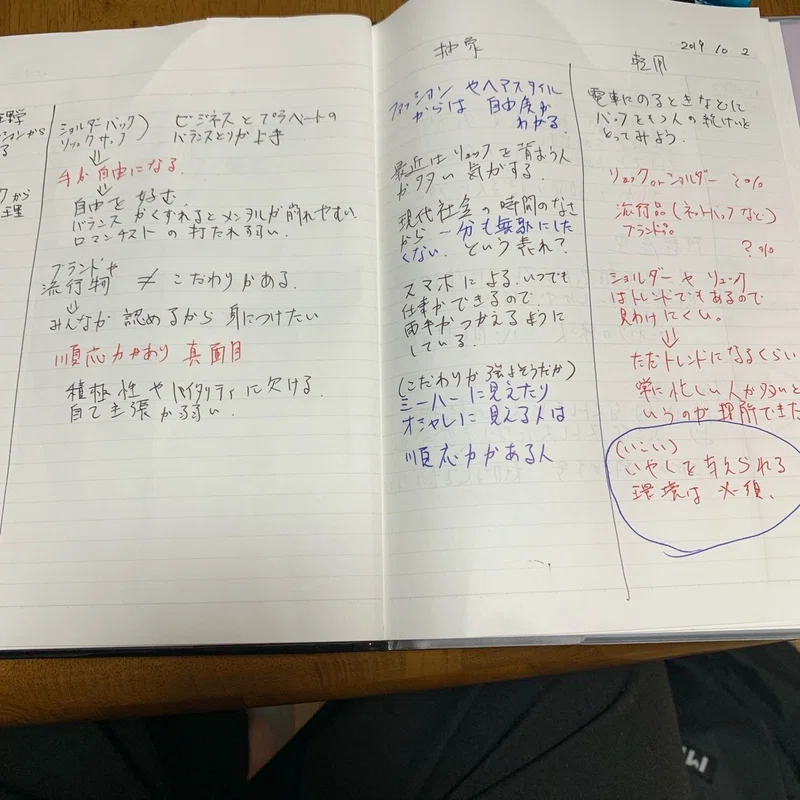 ションから
る
クから
ショルダーバック)
リュックサック
ビジネスとプラベートの
バランスとりがよき
⇓
手が自由になる.
⇓
自由を好む.
バランスがくずれるとメンタルが崩れやすい.
ロマンチストの打たれ弱い.
ブランドや
流行物 ≠ こだわりがある.
⇓
みんなが認めるから身につけたい
順応力があり 真面目
積極性やバイタリティに欠ける.
自己主張が弱い.
抽象
ファッションやヘアスタイル
からは自由度が
わかる.
最近はリュックを背おう人
が多い気がする.
現代社会の時間のなさ
から一分も無駄にした
くない.という表れ?
スマホによる.いつでも
仕事ができるので.
両手がつかえるように
している.
(こだわりが強よそうだが)
ミーハーに見えたり
オシャレに見える人は
順応力がある人
2019 10 2
転用
電車にのるときなどに
バックともつ人の統けいを
とってみよう.
リュックorショルダー ?0%
流行品(ネットバックなど)
ブランド品
?%
ショルダーやリュック
はトレンドでもあるので
見わけにくい.
⇓
ただトレンドになるくらい
常に忙しい人が多いと
いうのが理解できた
(いこい)
いやしを与えられる
環境は必須.